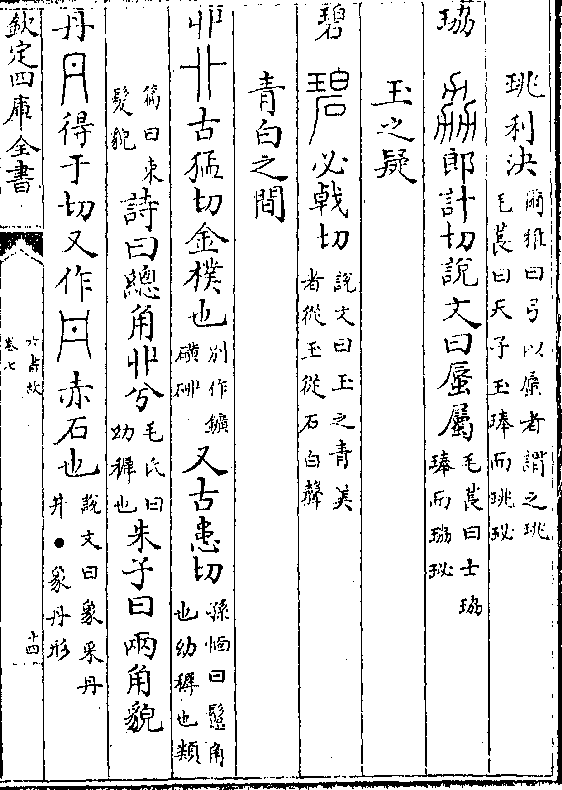 珧利決爾雅曰弓以蜃者謂之珧毛萇曰天子玉琫而珧珌
珕郎計切說文曰蜃屬毛萇曰士珕琫而珕珌
玉之疑
碧必戟切說文曰玉之青美者從玉從石白聲
青白之間
丱古猛切金樸也別作鑛磺又古患切孫愐曰角也幼稺也類
篇曰束髮貌詩曰總角丱兮毛氏曰幼稺也朱子曰兩角貌
丹得于切又作赤石也說文曰象采丹井●象丹形
欽定四庫全書
六書故
卷七
十四